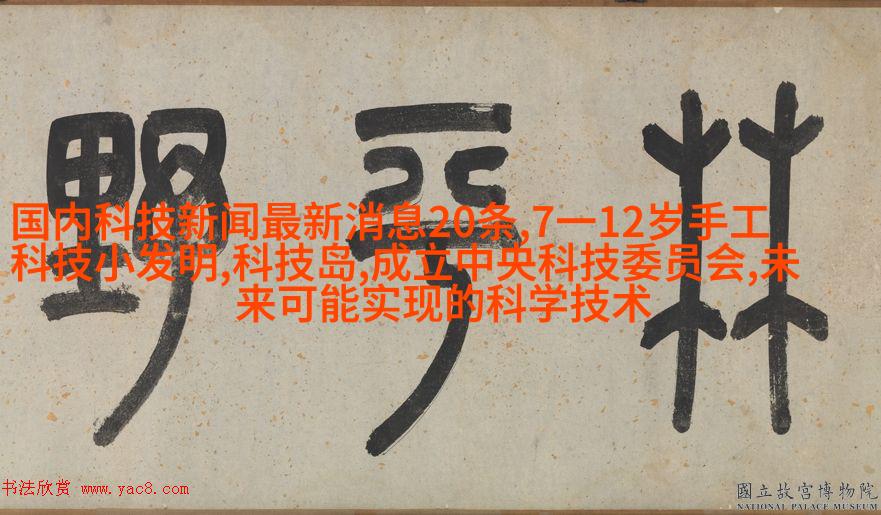 林平野
国内科技新闻最新消息20条,7一12岁手工
科技小发明,科技岛,成立中央科技委员会,未
来可能实现的科学技术
书法欣赏 www.yac8.com
國立故宮博物院
NATIONAL PALACE MUSEUM